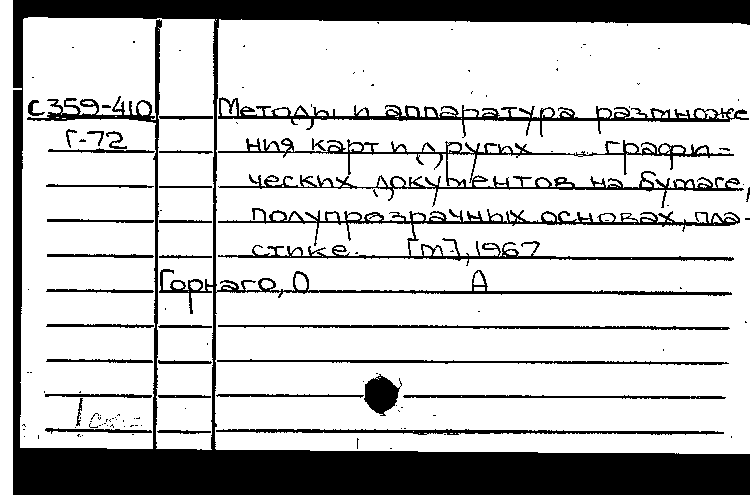 С359-410 Методы и аппаратура размноже
Г-72 ния карт и других графи-
ческих документов на бумаге,
полупрозрачных основах, пла-
стике. [М], 1967
Горнаго, О А